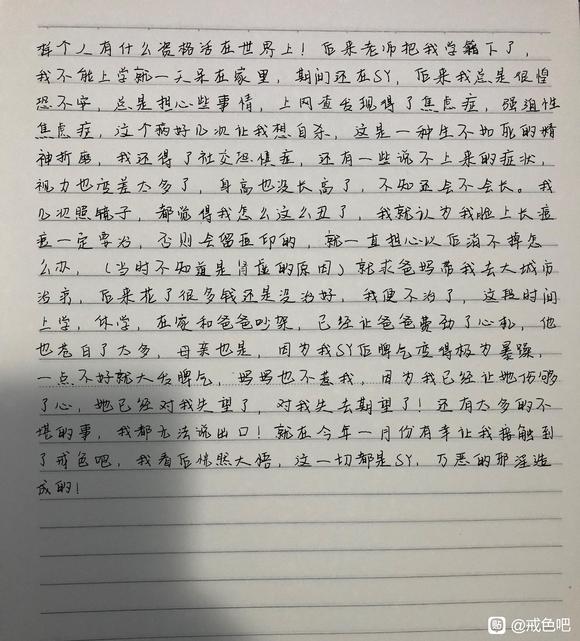 样个人有什么资格活在世界上！后来老师把我学籍下了，
我不能上学就一天呆在家里，期间还在SY，后来我总是很惶
恐不安，总是担心些事情，上网查发现得了焦虑症，强迫性
焦虑症，这个病好几次让我想自杀，这是一种生不如死的精
神折磨，我还得了社交恐惧症，还有一些说不上来的症状，
视力也变差太多了，身高也没长高了，不知还会不会长。我
几次照镜子，都觉得我怎么这么丑了，我就认为我脸上长痘
痘一定要治，否则会留血印的，就一直担心以后消不掉怎
么办，（当时不知道是肾虚的原因）就求爸妈带我去大城市
治疗，后来花了很多钱还是没治好，我便不治了，这段时间
上学，休学，在家和爸爸吵架，已经让爸爸费劲了心机，他
也苍白了太多，母亲也是，因为我SY后脾气变得极为暴躁，
一点不好就大发脾气，妈妈也不惹我，因为我已经让她伤够
了心，她已经对我失望了，对我失去期望了！还有太多的不
堪的事，我都无法说出口！就在今年一月份有幸让我接触到
了戒色吧，我看后恍然大悟，这一切都是SY，万恶的邪淫造
成的！
贴 @戒色吧